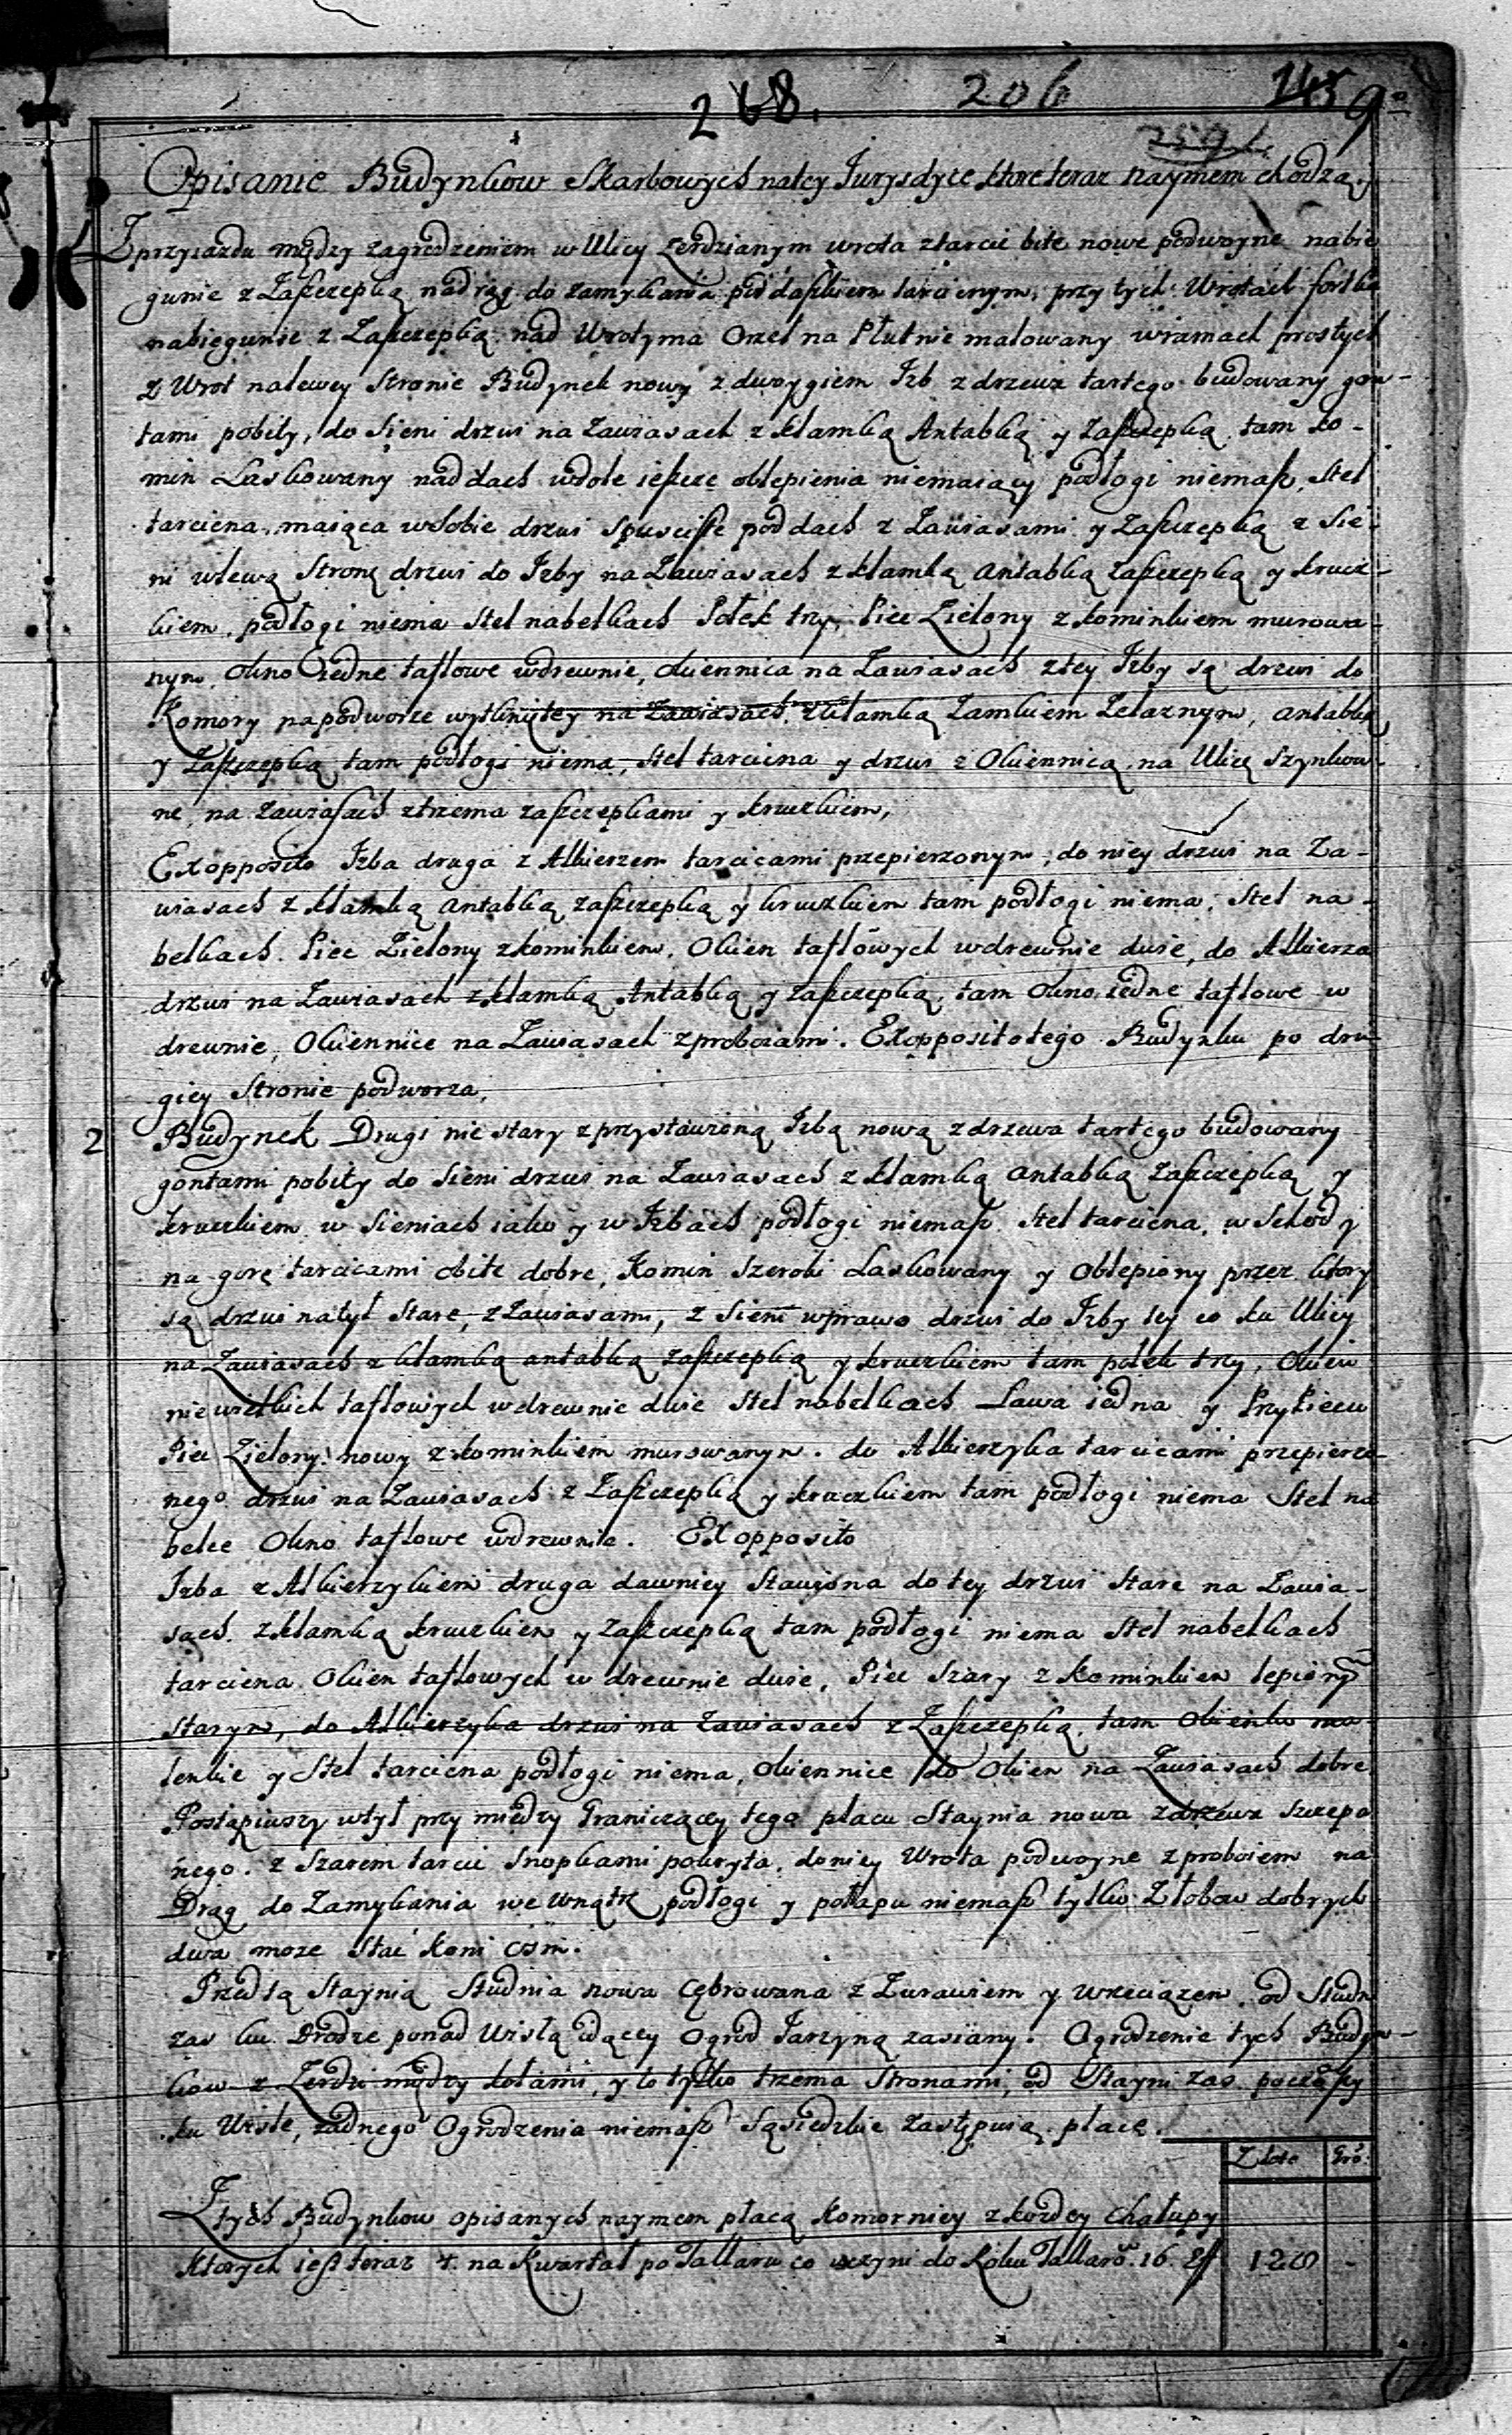 268. 206 9
Opisanie Budynkow Skarbowych na tey Jurysdyce ktore teraz naymem chodzą
Z przyiazdu między zagrodzeniem w Ulicy żerdzianym wrota z tarcic bite nowe podwoyne na bie-
gunie z Zaszczepką na drąg do zamykania pod daszkiem tarcicnym, przy tych Wrotach fortka
na biegunie z Zaszczepką nad Wrotyma Orzeł na Płutnie malowany w ramach prostych
Z Wrot na lewey Stronie Budynek nowy z dwoygiem Izb z drzewa tartego budowany gon-
tami pobity, do Sieni drzwi na Zawiasach z klamką Antabką y Zaszczepką tam ko-
min Laskowany nad dach w dole ieszcze oblepienia niemaiący podłogi niemasz, Stel
tarcicna, maiąca w sobie drzwi Spusciste pod dach z Zawiasami y Zaszczepką z Sie-
ni w lewą Stronę drzwi do Izby na Zawiasach z klamką antabką zaszczepką y krucz-
kiem, podłogi niema Stel na belkach Połek trzy, Piec Zielony z kominkiem murowa-
nym, Okno iedne taflowe w drewnie, okiennica na Zawiasach z tey Izby są drzwi do
Komory na podworze wytkniętey na Zawiasach z klamką Zamkiem Żelaznym, antabką
y Zaszczepką tam podłogi niema, Stel tarcicna y drzwi z Okiennicą na Ulicę Szynkow-
ne, na zawiasach z trzema zaszczepkami y kruczkiem,
Ex opposito Izba druga z Alkierzem tarcicami przepierzonym, do niey drzwi na Za-
wiasach z klamką antabką zaszczepką y kruczkiem tam podłogi niema, Stel na
belkach. Piec Zielony z kominkiem, Okien taflowych w drewnie dwie, do Alkierza
drzwi na Zawiasach z klamką Antabką y Zaszczepką, tam Okno iedne taflowe w
drewnie, Okiennice na Zawiasach z proboiami. Ex opposito tego Budynku po dru-
giey Stronie podworza,
2 Budynek Drugi nie stary z przystawioną Izbą nową z drzewa tartego budowany
gontami pobity do Sieni drzwi na Zawiasach z klamką antabką Zaszczepką y
kruczkiem w Sieniach iako y w Izbach podłogi niemasz Stel tarcicna, w Schody
na gorę tarcicami obite dobre, Komin Szeroki Laskowany y Oblepiony przez ktory
są drzwi na tył Stare, z Zawiasami, z Sieni w prawo drzwi do Izby tey co ku Ulicy
na Zawiasach z klamką antabką zaszczepką y kruczkiem tam połek trzy, Okien
niewielkich taflowych w drewnie dwie Stel na belkach Ława iedna y Przypiecu
Piec Zielony nowy z kominkiem murowanym. do Alkierzyka tarcicami przepierzo-
nego drzwi na Zawiasach z Zaszczepką y kruczkiem tam podłogi niema Stel na
belce Okno taflowe w drewnie. Ex opposito
Izba z Alkierzykiem druga dawniey Stawiona do tey drzwi Stare na Zawia-
sach z klamką kruczkiem y Zaszczepką tam podłogi niema Stel na belkach
tarcicna Okien taflowych w drewnie dwie, Piec Szary z kominkiem lepiony
Starym, do Alkierzyka drzwi na zawiasach z Zaszczepką, tam Okienko ma-
lenkie y Stel tarcicna podłogi niema, Okiennice do Okien na Zawiasach dobre
Postąpiwszy w tył przy miedzy Graniczącey tego placu Staynia nowa z drzewa szczepo-
nego. z Szarem tarcic Snopkami pokryta, do niey Wrota podwoyne z proboiem na
Drąg do Zamykania we wnątrz podłogi y połapu niemasz tylko Złobow dobrych
dwa może Stać koni osm.
Przed tą Staynią Studnia nowa Cębrowana z Zurawiem y wrzeciązem, od Studni
zas ku Drodze ponad Wisłą idącey Ogrod Jarzyną zasiany. Ogrodzenie tych Budyn-
kow z Żerdzi między kołami, y to tylko trzema Stronami, od Stayni zas począwszy
ku Wisle, żadnego Ogrodzenia niemasz Sąsiedzkie zastępuią place.
Złote Gro:
Z tych Budynkow opisanych naymem płacą Komornicy z każdey Chałupy
ktorych iest teraz 4. na Kwartał po Tallaru co uczyni do Roku Tallarow 16. 128 -